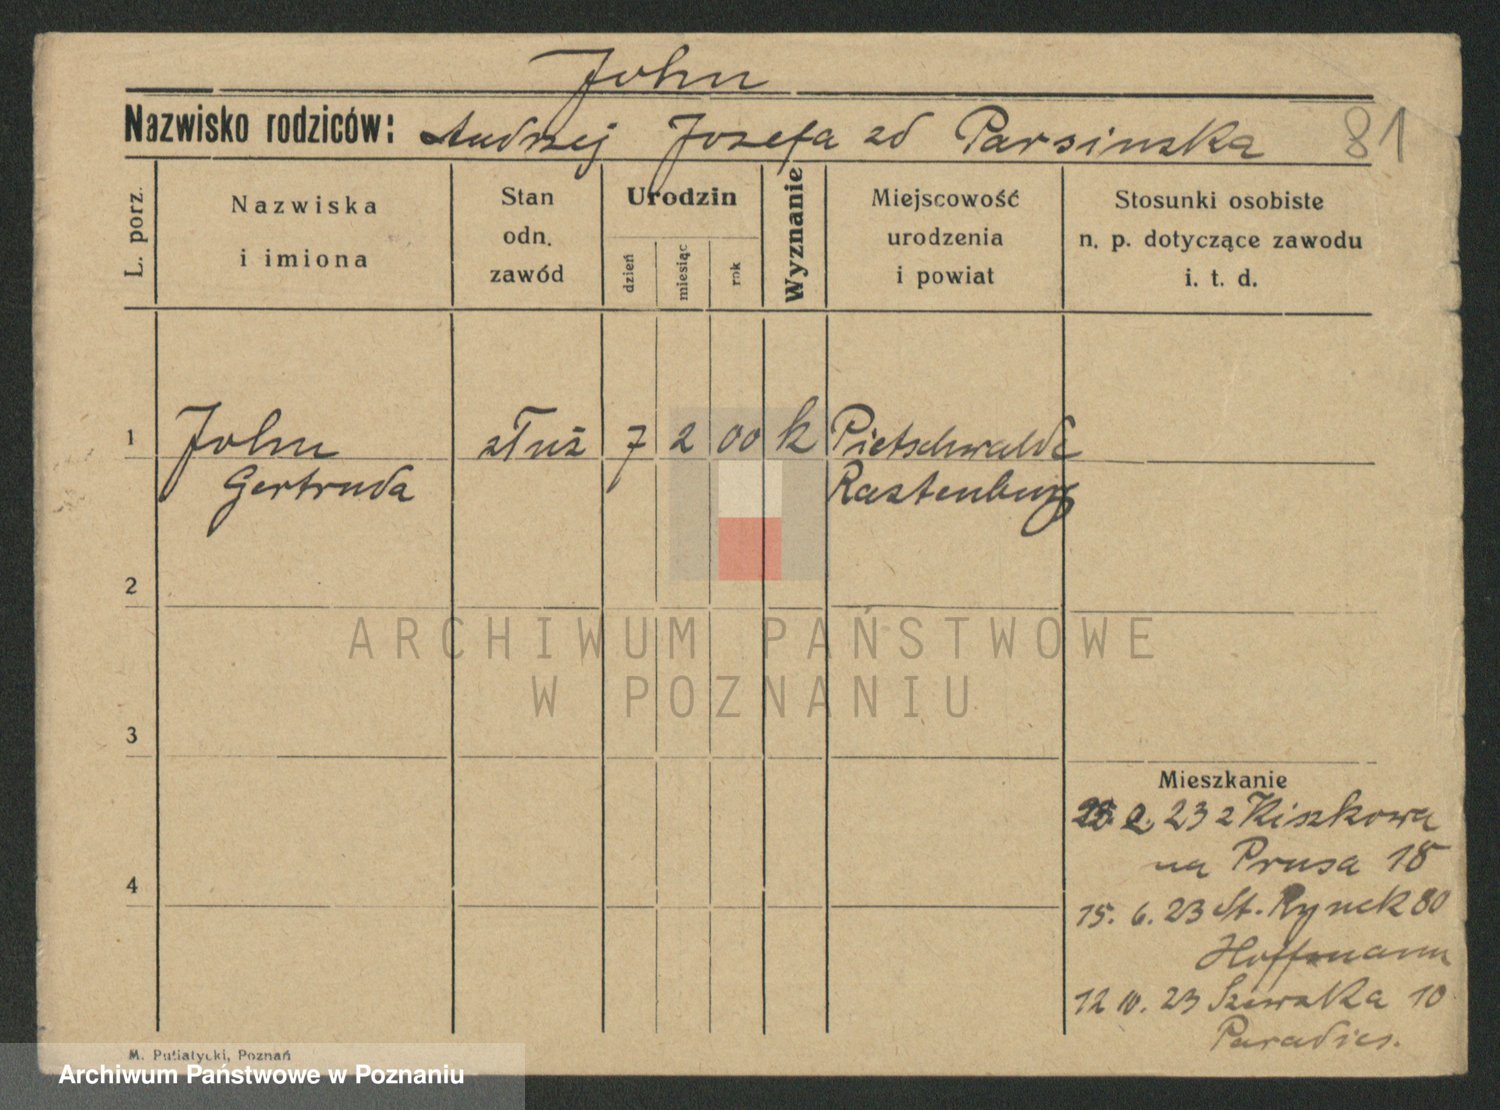 John
Nazwisko rodziców: Andrzej Jozefa zd Parsinska 81
L. porz.
Nazwiska
i imiona
Stan
odn.
zawód
Urodzin
dzień
miesiąc
rok
Wyznanie
Miejscowość
urodzenia
i powiat
Stosunki osobiste
n. p. dotyczące zawodu
i. t. d.
1 John służ 7 2 00 k Pietschwalde
Gertruda Rastenburg
2
ARCHIWUM PAŃSTWOWE
W POZNANIU
3
Mieszkanie
2. 23 z Kiszkowa
na Prusa 18
4
15. 6. 23 St. Rynek 80
Hoffmann
12 10. 23 Szewska 10
Paradies.
M. Putiatycki, Poznań
Archiwum Państwowe w Poznaniu